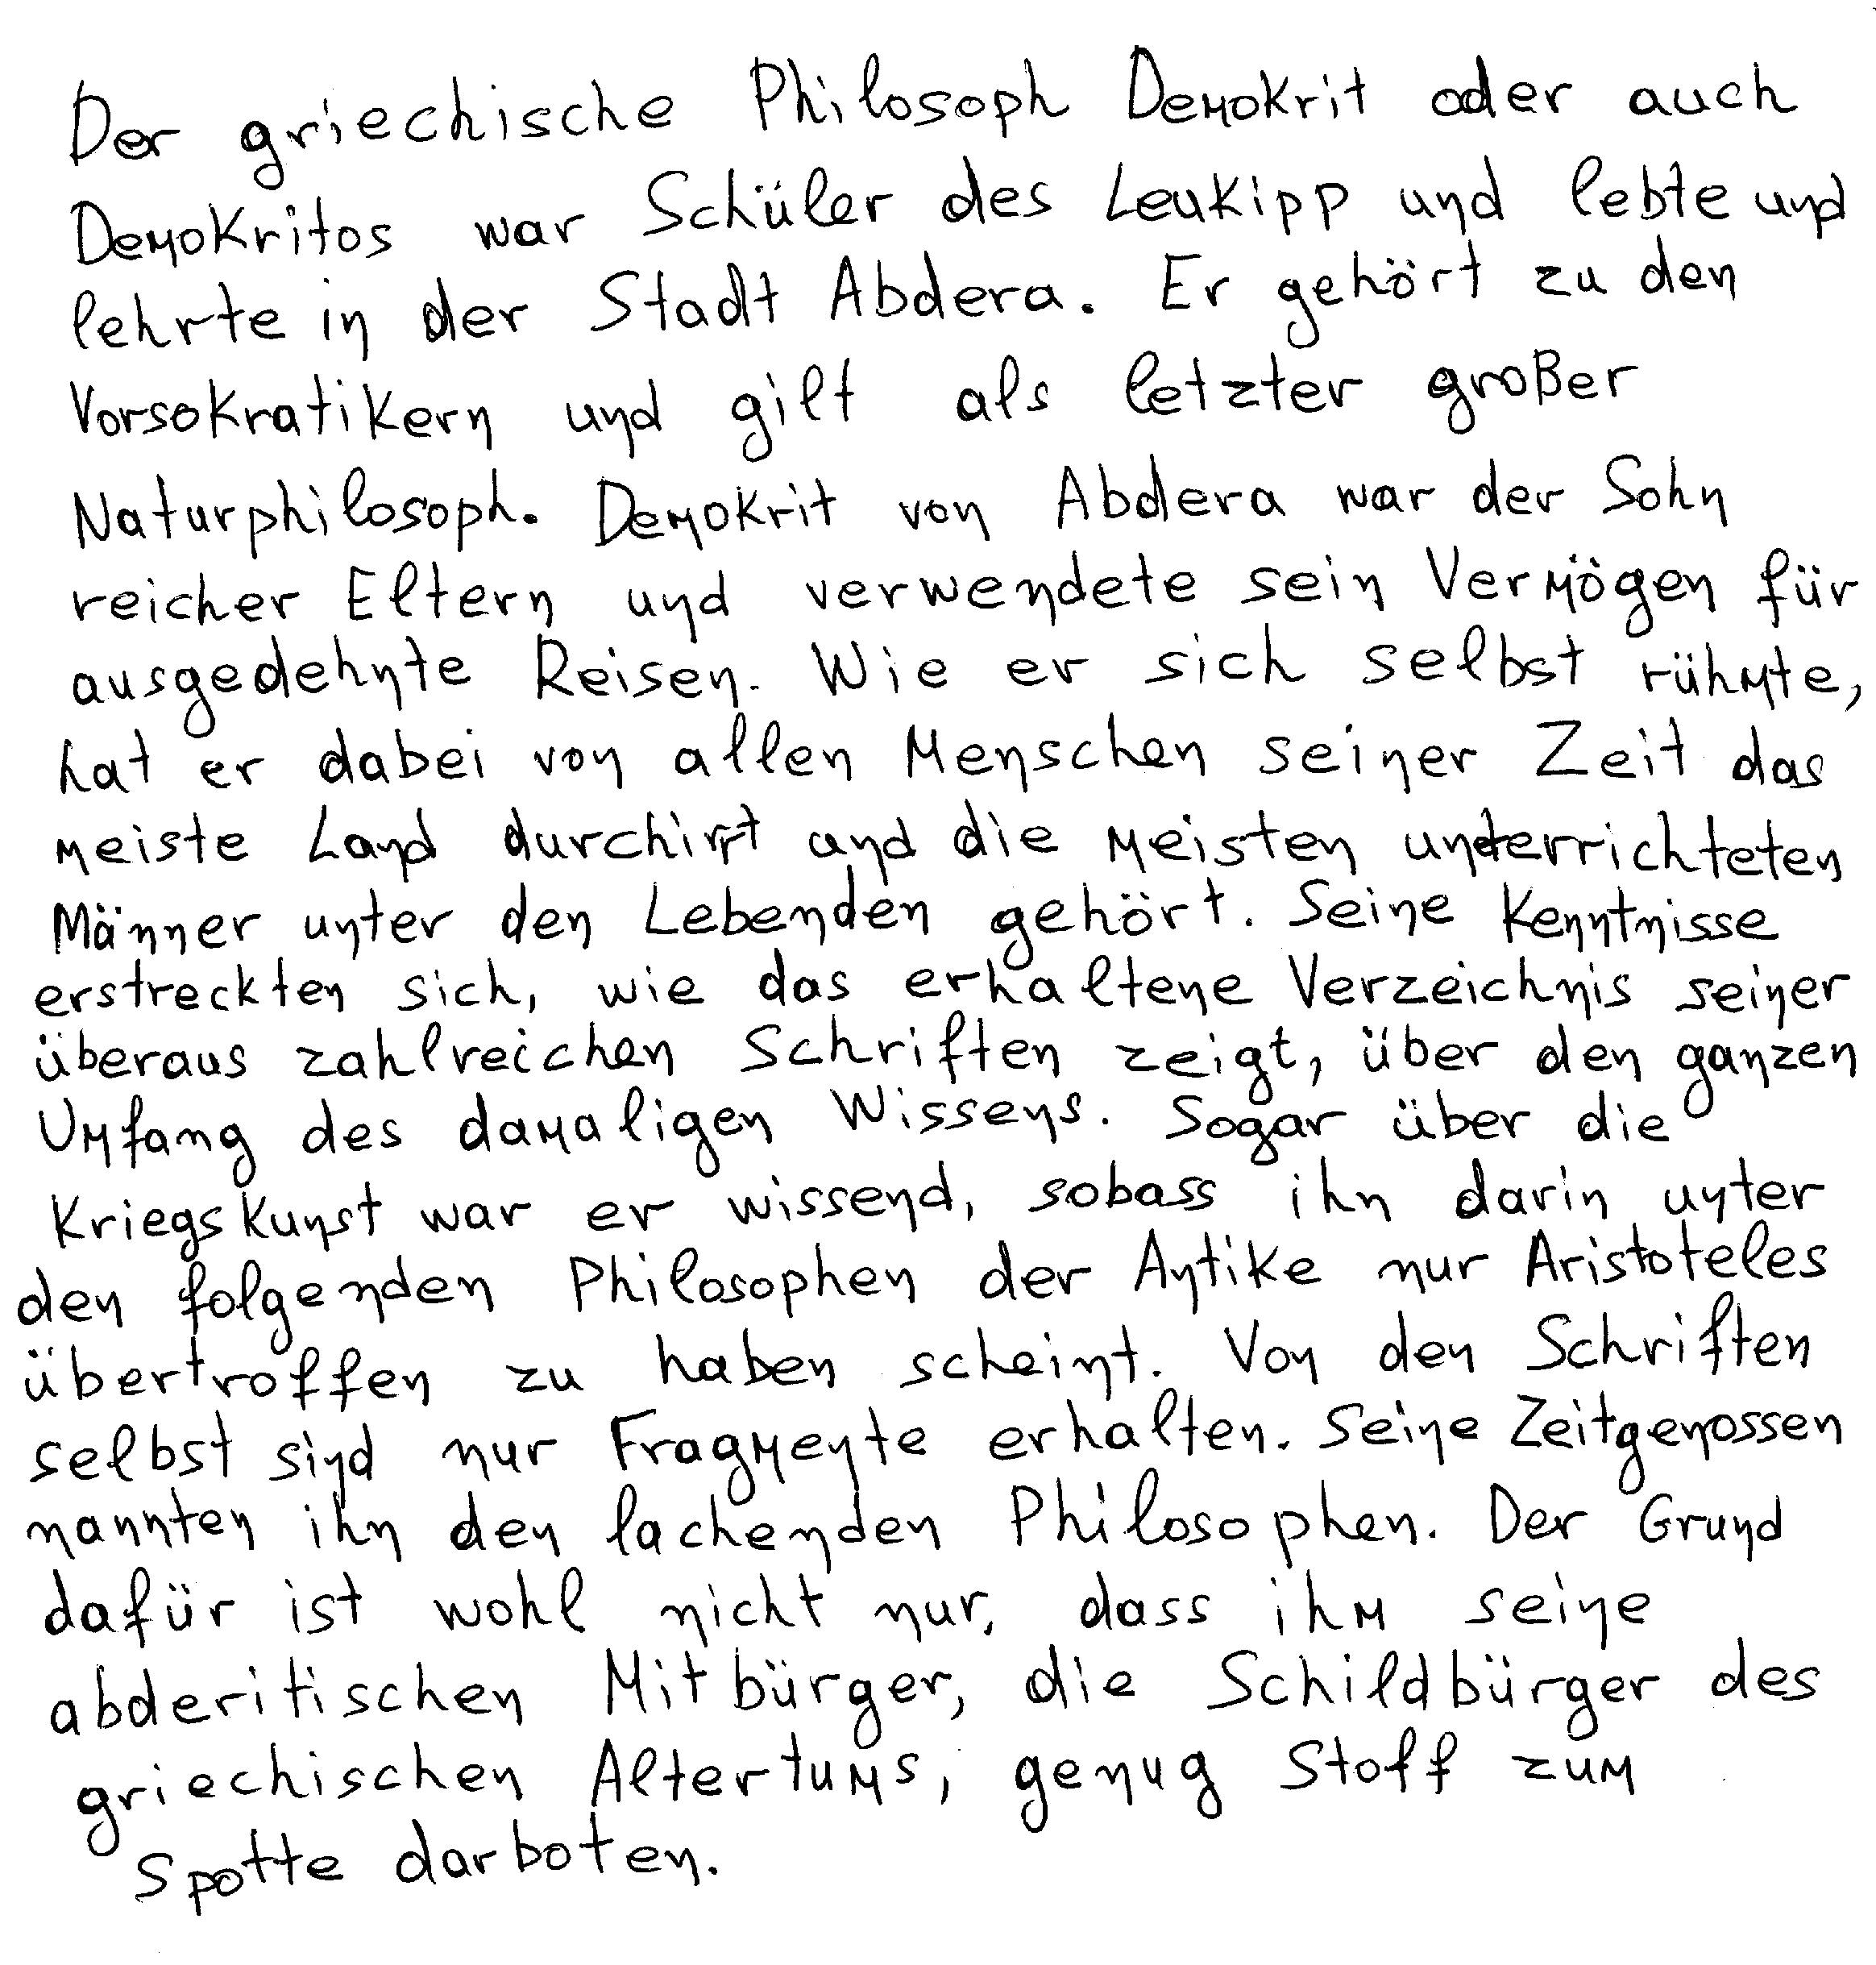 Der griechische Philosoph Demokrit oder auch
Demokritos war Schüler des Leukipp und lebte und
lehrte in der Stadt Abdera. Er gehört zu den
Vorsokratikern und gilt als letzter großer
Naturphilosoph. Demokrit von Abdera war der Sohn
reicher Eltern und verwendete sein Vermögen für
ausgedehnte Reisen. Wie er sich selbst rühmte,
hat er dabei von allen Menschen seiner Zeit das
meiste Land durchirrt und die meisten unterrichteten
Männer unter den Lebenden gehört. Seine Kenntnisse
erstreckten sich, wie das erhaltene Verzeichnis seiner
überaus zahlreichen Schriften zeigt, über den ganzen
Umfang des damaligen Wissens. Sogar über die
Kriegskunst war er wissend, sobass ihn darin unter
den folgenden Philosophen der Antike nur Aristoteles
übertroffen zu haben scheint. Von den Schriften
selbst sind nur Fragmente erhalten. Seine Zeitgenossen
nannten ihn den lachenden Philosophen. Der Grund
dafür ist wohl nicht nur, dass ihm seine
abderitischen Mitbürger, die Schildbürger des
griechischen Altertums, genug Stoff zum
Spotte darboten.